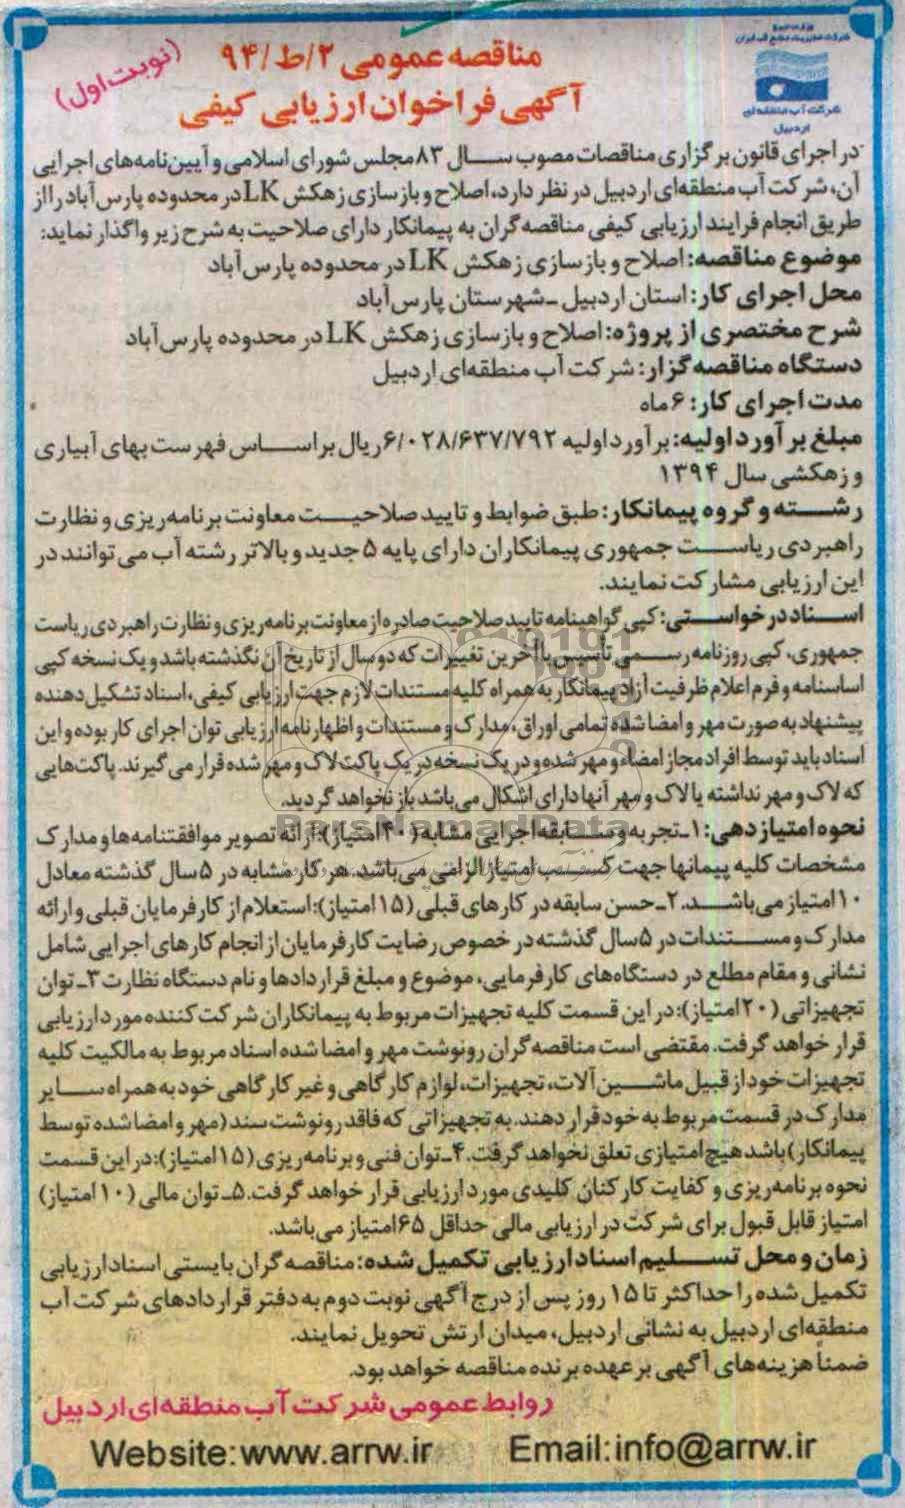 وزارت نیرو
شرکت مدیریت منابع آب ایران
شرکت آب منطقه‌ای
اردبیل
(نوبت اول)
مناقصه عمومی ۲/ط/۹۴
آگهی فراخوان ارزیابی کیفی
در اجرای قانون برگزاری مناقصات مصوب سال ۸۳ مجلس شورای اسلامی و آیین‌نامه‌های اجرایی
آن، شرکت آب منطقه‌ای اردبیل در نظر دارد، اصلاح و بازسازی زهکش LK در محدوده پارس‌آباد را از
طریق انجام فرایند ارزیابی کیفی مناقصه‌گران به پیمانکار دارای صلاحیت به شرح زیر واگذار نماید:
موضوع مناقصه: اصلاح و بازسازی زهکش LK در محدوده پارس‌آباد
محل اجرای کار: استان اردبیل ـ شهرستان پارس‌آباد
شرح مختصری از پروژه: اصلاح و بازسازی زهکش LK در محدوده پارس‌آباد
دستگاه مناقصه‌گزار: شرکت آب منطقه‌ای اردبیل
مدت اجرای کار: ۶ ماه
مبلغ برآورد اولیه: برآورد اولیه ۶/۰۲۸/۶۳۷/۷۹۲ ریال براساس فهرست بهای آبیاری
و زهکشی سال ۱۳۹۴
رشته و گروه پیمانکار: طبق ضوابط و تایید صلاحیت معاونت برنامه‌ریزی و نظارت
راهبردی ریاست جمهوری پیمانکاران دارای پایه ۵ جدید و بالاتر رشته آب می‌توانند در
این ارزیابی مشارکت نمایند.
اسناد درخواستی: کپی گواهینامه تایید صلاحیت صادره از معاونت برنامه‌ریزی و نظارت راهبردی ریاست
جمهوری، کپی روزنامه رسمی تأسیس با آخرین تغییرات که دو سال از تاریخ آن نگذشته باشد و یک نسخه کپی
اساسنامه و فرم اعلام ظرفیت آزاد پیمانکار به همراه کلیه مستندات لازم جهت ارزیابی کیفی، اسناد تشکیل دهنده
پیشنهاد به صورت مهر و امضا شده تمامی اوراق، مدارک و مستندات و اظهارنامه ارزیابی توان اجرای کار بوده و این
اسناد باید توسط افراد مجاز امضاء و مهر شده و در یک نسخه در یک پاکت لاک و مهر شده قرار می‌گیرند. پاکت‌هایی
که لاک و مهر نداشته یا لاک و مهر آنها دارای اشکال می‌باشد باز نخواهد گردید.
نحوه امتیازدهی: ۱ـ تجربه و سابقه اجرایی مشابه (۴۰ امتیاز): ارائه تصویر موافقتنامه‌ها و مدارک
مشخصات کلیه پیمانها جهت کسب امتیاز الزامی می‌باشد. هر کار مشابه در ۵ سال گذشته معادل
۱۰ امتیاز می‌باشد. ۲ـ حسن سابقه در کارهای قبلی (۱۵ امتیاز): استعلام از کارفرمایان قبلی و ارائه
مدارک و مستندات در ۵ سال گذشته در خصوص رضایت کارفرمایان از انجام کارهای اجرایی شامل
نشانی و مقام مطلع در دستگاه‌های کارفرمایی، موضوع و مبلغ قراردادها و نام دستگاه نظارت ۳ـ توان
تجهیزاتی (۲۰ امتیاز): در این قسمت کلیه تجهیزات مربوط به پیمانکاران شرکت کننده مورد ارزیابی
قرار خواهد گرفت. مقتضی است مناقصه‌گران رونوشت مهر و امضا شده اسناد مربوط به مالکیت کلیه
تجهیزات خود از قبیل ماشین‌آلات، تجهیزات، لوازم کارگاهی و غیر کارگاهی خود به همراه سایر
مدارک در قسمت مربوط به خود قرار دهند. به تجهیزاتی که فاقد رونوشت سند (مهر و امضا شده توسط
پیمانکار) باشد هیچ امتیازی تعلق نخواهد گرفت. ۴ـ توان فنی و برنامه‌ریزی (۱۵ امتیاز): در این قسمت
نحوه برنامه‌ریزی و کفایت کارکنان کلیدی مورد ارزیابی قرار خواهد گرفت. ۵ـ توان مالی (۱۰ امتیاز)
امتیاز قابل قبول برای شرکت در ارزیابی مالی حداقل ۶۵ امتیاز می‌باشد.
زمان و محل تسلیم اسناد ارزیابی تکمیل شده: مناقصه‌گران بایستی اسناد ارزیابی
تکمیل شده را حداکثر تا ۱۵ روز پس از درج آگهی نوبت دوم به دفتر قراردادهای شرکت آب
منطقه‌ای اردبیل به نشانی اردبیل، میدان ارتش تحویل نمایند.
ضمناً هزینه‌های آگهی بر عهده برنده مناقصه خواهد بود.
روابط عمومی شرکت آب منطقه‌ای اردبیل
Website: www.arrw.ir Email: info@arrw.ir
ParsNamadData